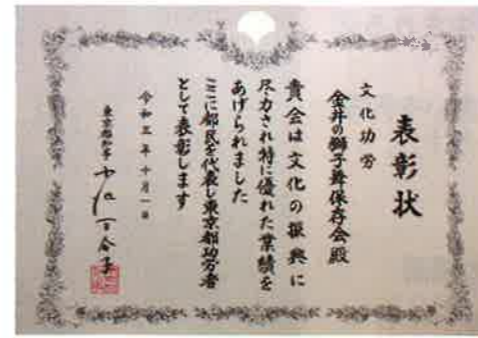 表彰状
文化功労
金井の獅子舞保存会殿
貴会は文化の振興に
尽力され特に優れた業績を
あげられました
ここに都民を代表し東京都功労者
として表彰します
令和三年十月一日
東京都知事 小池百合子